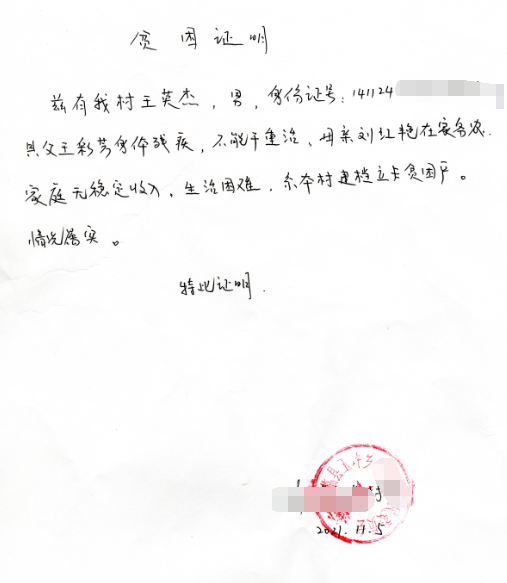 贫困证明
兹有我村王英杰，男，身份证号：141124
其父王彩芳身体残疾，不能干重活，母亲刘红艳在家务农.
家庭无稳定收入，生活困难，系本村建档立卡贫困户。
情况属实。
特此证明.
县玉坪乡
村
2021.11.5